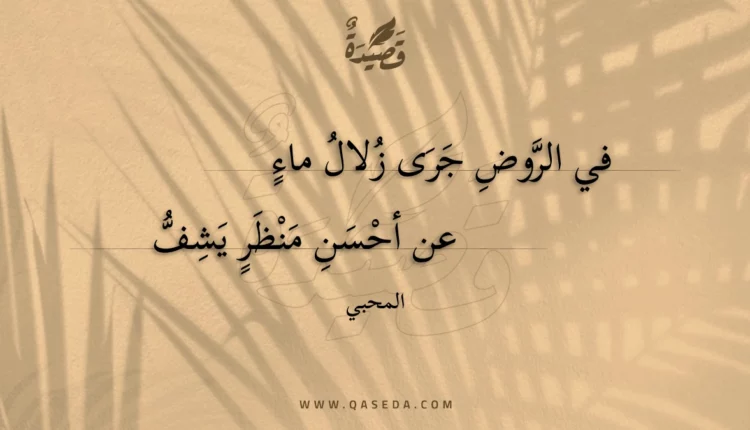 قَصِيْدَةٌ
في الرَّوضِ جَرَى زُلالُ ماءٍ
عن أحْسَنِ مَنْظَرٍ يَشِفُّ
المحبي
WWW.QASEDA.COM